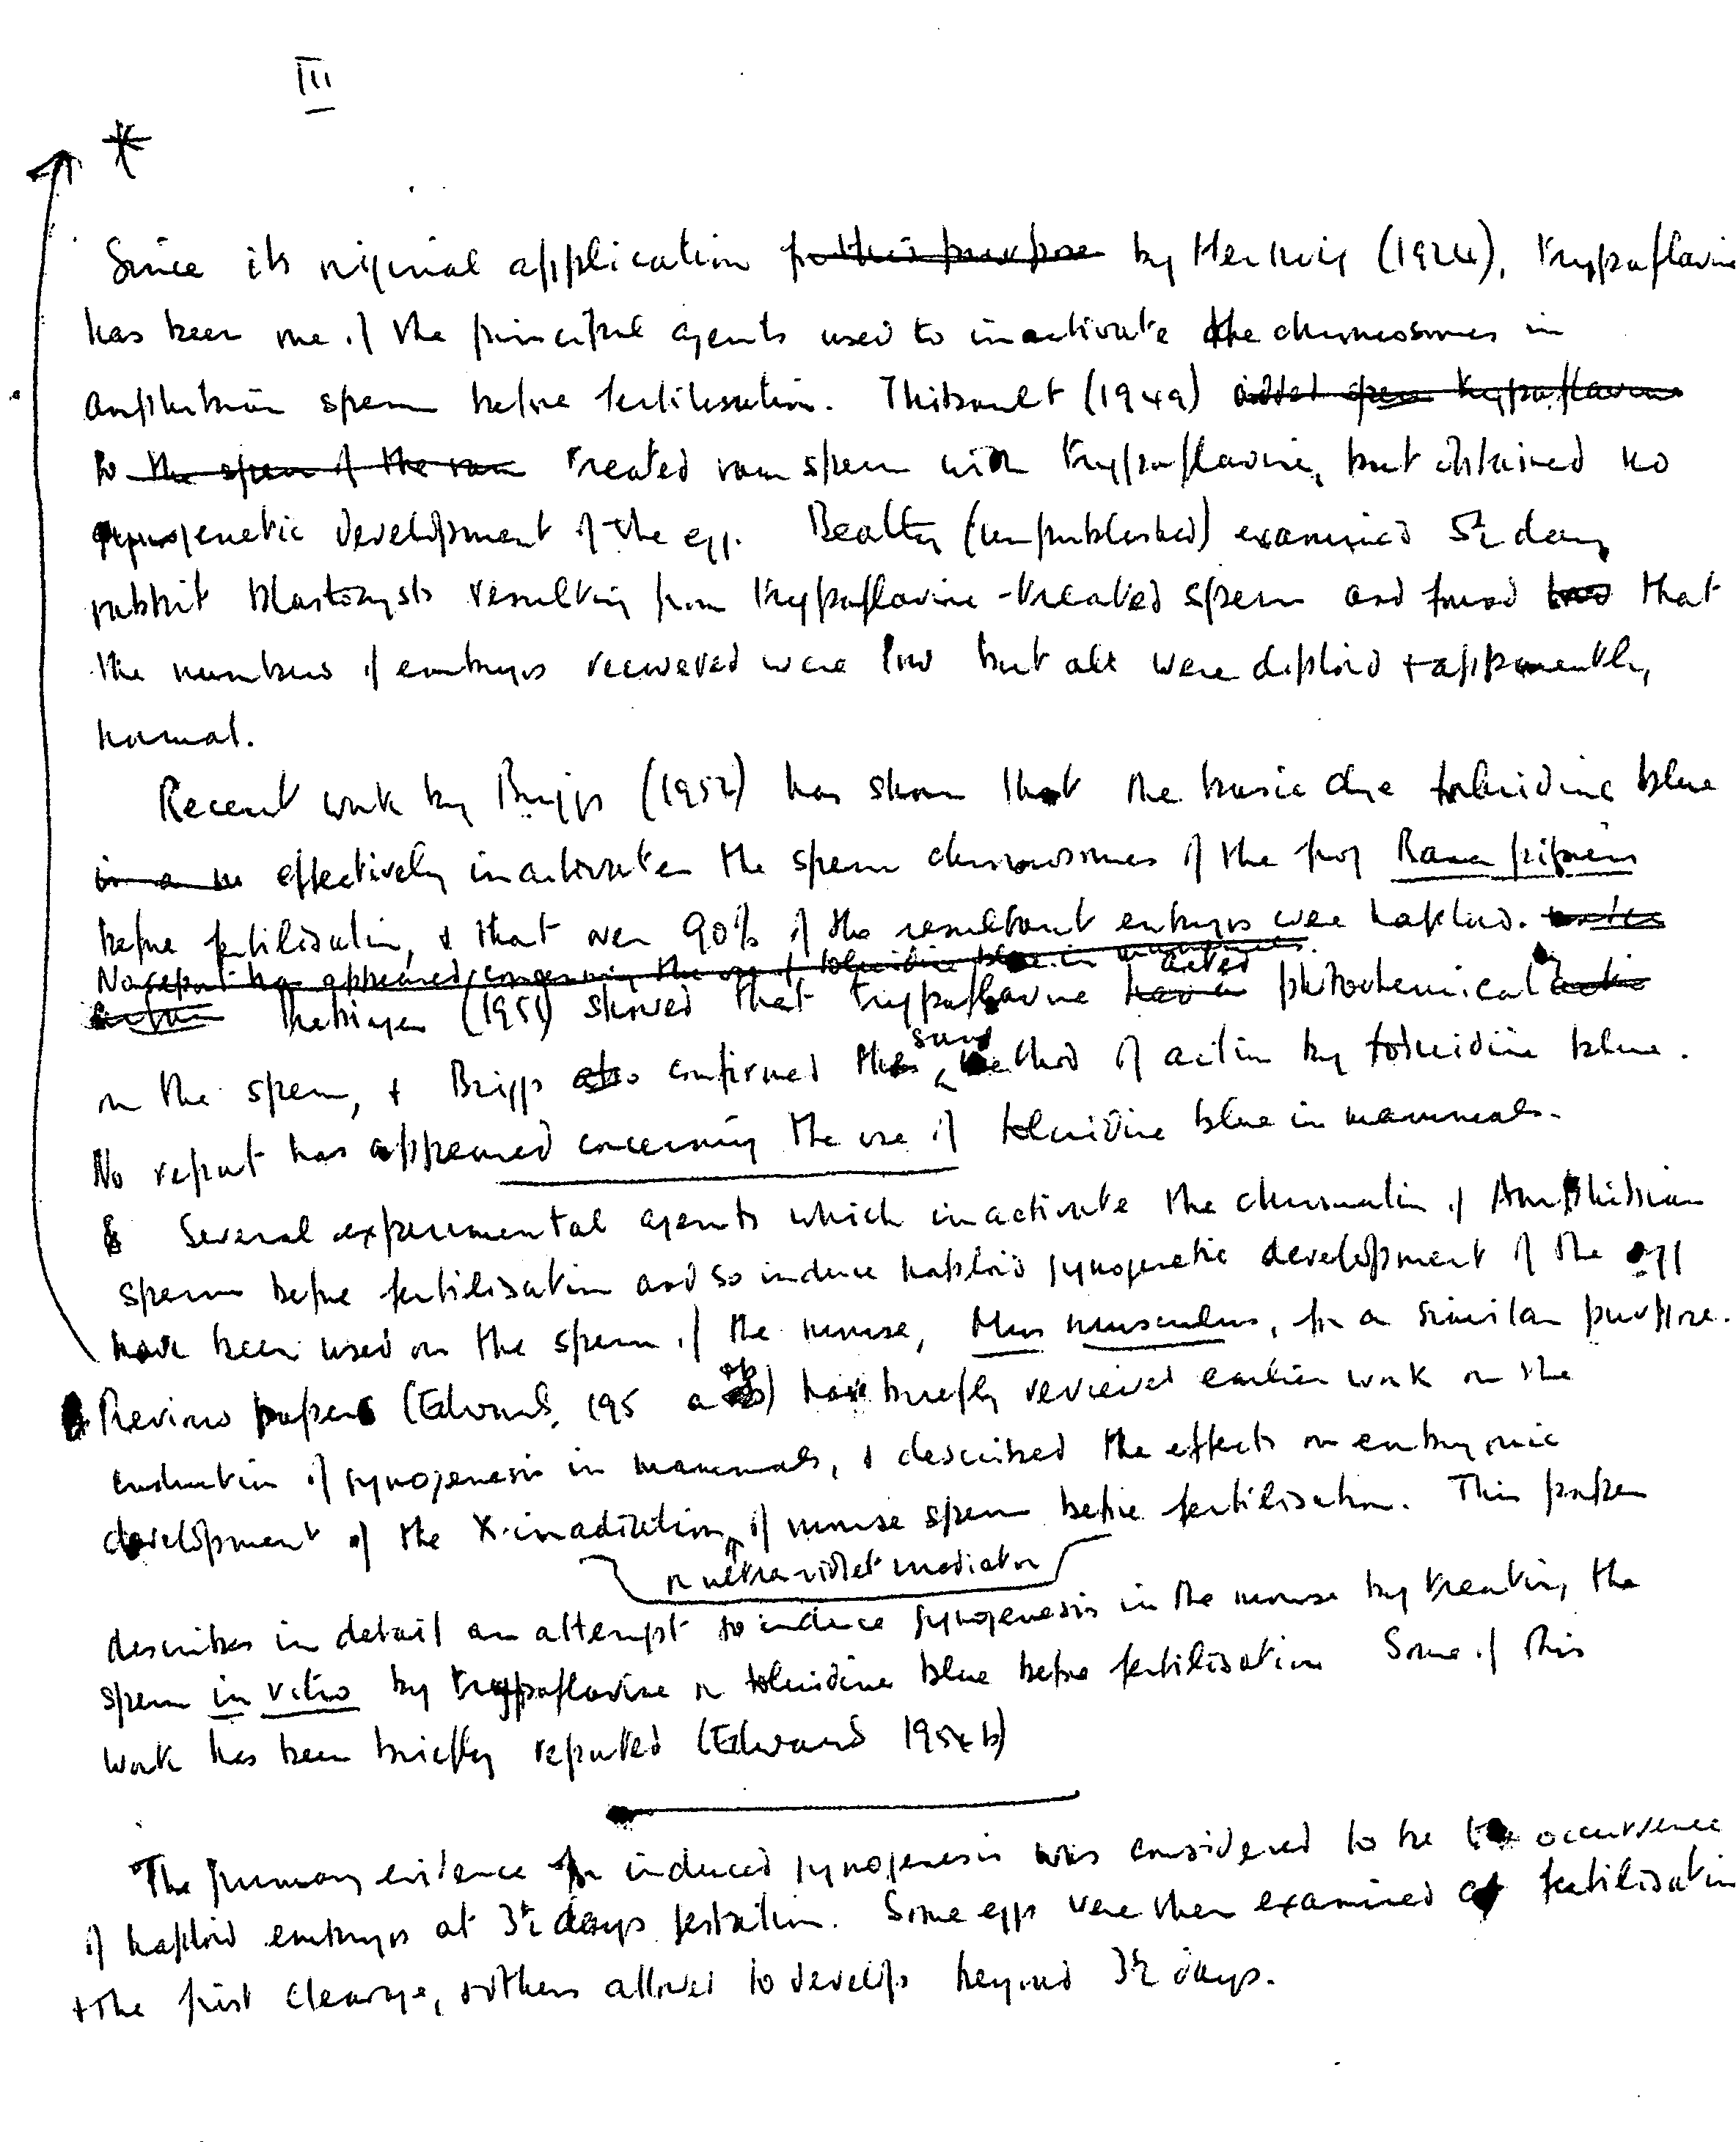 III
*
Since its original application for this purpose by Hertwig (1924), trypaflavine
has been one of the principal agents used to inactivate the chromosomes in
amphibian sperm before fertilisation. Thibault (1949) added sperm trypaflavine
to the sperm of the ram treated ram sperm with trypaflavine, but obtained no
gynogenetic development of the egg. Beatty (unpublished) examined 5½ day
rabbit blastocysts resulting from trypaflavine-treated sperm and found that
the numbers of embryos recovered were low but all were diploid + apparently
normal.
Recent work by Briggs (1952) has shown that the basic dye toluidine blue
is a effectively inactivates the sperm chromosomes of the frog Rana pipiens
before fertilisation, & that over 90% of the resultant embryos were haploid.
No report has appeared concerning the use of toluidine blue in mammals.
(1951) showed that trypaflavine has a acted photochemical
on the sperm, & Briggs also confirmed this same method of action by toluidine blue.
No report has appeared concerning the use of toluidine blue in mammals.
Several experimental agents which inactivate the chromatin of Amphibian
sperm before fertilisation and so induce haploid gynogenetic development of the egg
have been used on the sperm of the mouse, Mus musculus, for a similar purpose.
Previous papers (Edwards, 195 a & b) have briefly reviewed earlier work on the
induction of gynogenesis in mammals, & described the effects on embryonic
development of the X-irradiation of mouse sperm before fertilisation. This paper
or ultra-violet irradiation
describes in detail an attempt to induce gynogenesis in the mouse by treating the
sperm in vitro by trypaflavine or toluidine blue before fertilisation Some of this
work has been briefly reported (Edwards 1954b)
The primary evidence for induced gynogenesis was considered to be the occurrence
of haploid embryos at 3½ days gestation. Some eggs were then examined at fertilisation
+ the first cleavage, & others allowed to develop beyond 3½ days.